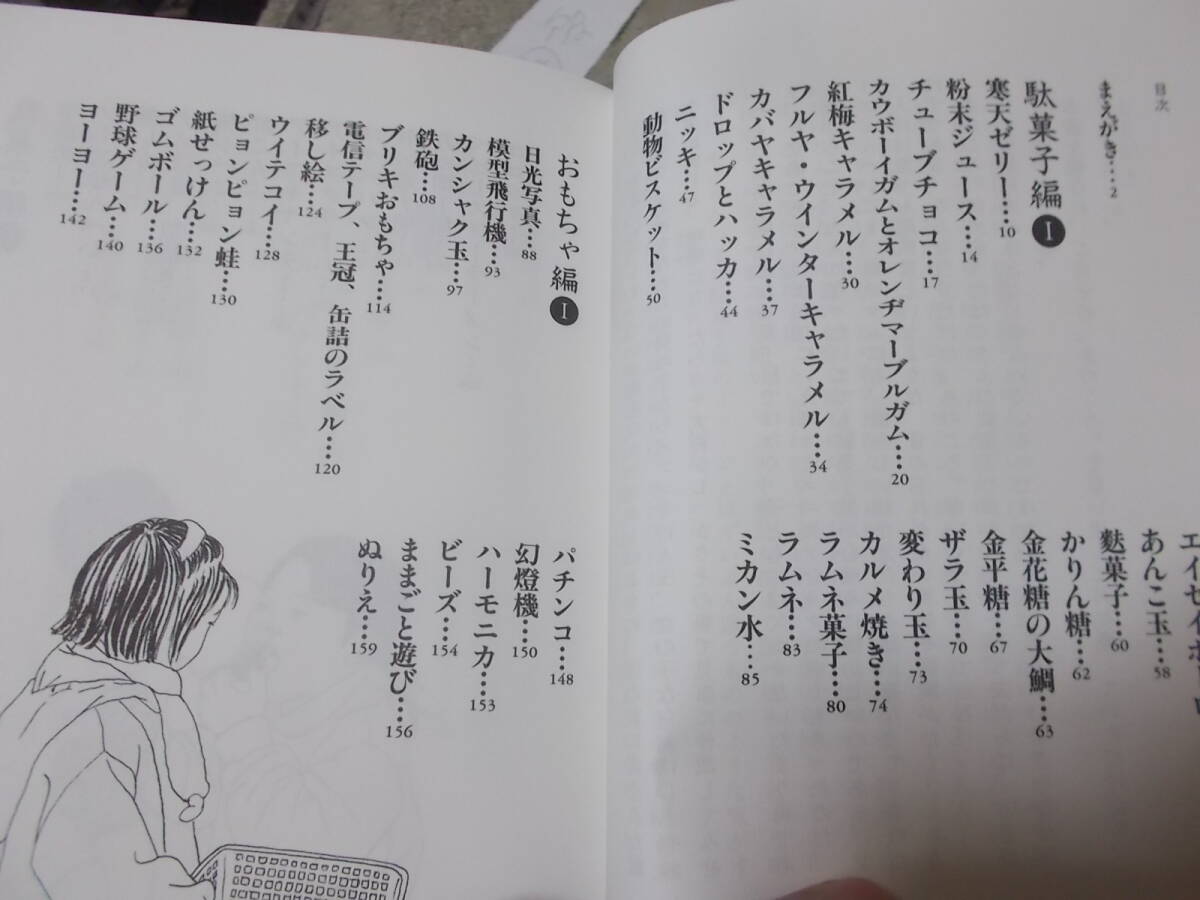 目次
まえがき…2
駄菓子編❶
寒天ゼリー…10
粉末ジュース…14
チューブチョコ…17
カウボーイガムとオレンヂマーブルガム…20
紅梅キャラメル…30
フルヤ・ウインターキャラメル…34
カバヤキャラメル…37
ドロップとハッカ…44
ニッキ…47
動物ビスケット…50
あんこ玉…58
麩菓子…60
かりん糖…62
金花糖の大鯛…63
金平糖…67
ザラ玉…70
変わり玉…73
カルメ焼き…74
ラムネ菓子…80
ラムネ…83
ミカン水…85
おもちゃ編❶
日光写真…88
模型飛行機…93
カンシャク玉…97
鉄砲…108
ブリキおもちゃ…114
電信テープ、王冠、缶詰のラベル…120
移し絵…124
ウイテコイ…128
ピョンピョン蛙…130
紙せっけん…132
ゴムボール…136
野球ゲーム…140
ヨーヨー…142
パチンコ…148
幻燈機…150
ハーモニカ…153
ビーズ…154
ままごと遊び…156
ぬりえ…159